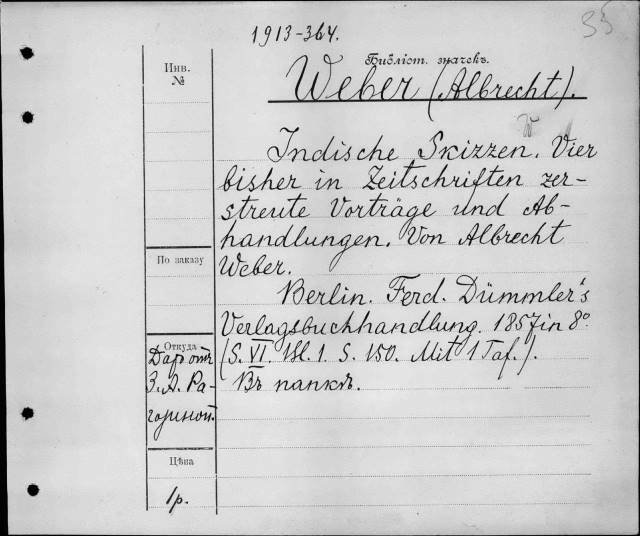 35
1913-364.
Библіот. значекъ.
Инв.
№
Weber (Albrecht).
Indische Skizzen. Vier
bisher in Zeitschriften zer-
streute Vorträge und Ab-
handlungen. Von Albrecht
Weber.
По заказу
Berlin. Ferd. Dümmler's
Verlagsbuchhandlung. 1857 in 8º
(S. VI. Bl. 1. S. 150. Mit 1 Taf.).
Въ папкѣ.
Откуда
Даръ отъ
З. А. Ра-
гозиной.
Цѣна
1 р.